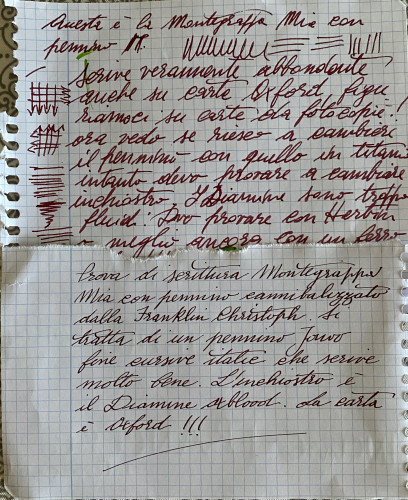 Questa è la Montegrappa Mia con
pennino M.
scrive veramente abbondante
anche su carta Oxford figu
riamoci su carta da fotocopie!
ora vedo se riesco a cambiare
il pennino con quello in titanio
intanto devo provare a cambiare
inchiostro. I Diamine sono troppo
fluidi. Devo provare con Herbin
o meglio ancora con un ferro
Prova di scrittura Montegrappa
Mia con pennino cannibalizzato
dalla Franklin Christoph. Si
tratta di un pennino Jowo
fine cursive italic che scrive
molto bene. L'inchiostro è
il Diamine Oxblood. La carta
è Oxford !!!